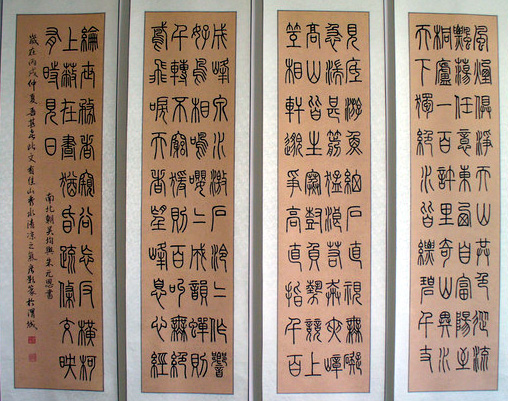 風煙俱淨天山共色從流
飄蕩任意東西自富陽至
桐廬一百許里奇山異水
天下獨絕水皆縹碧千丈
見底游魚細石直視無礙
急湍甚箭猛浪若奔夾岸
高山皆生寒樹負勢競上
互相軒邈爭高直指千百
成峰泉水激石泠泠作響
好鳥相鳴嚶嚶成韻蟬則
千轉不窮猿則百叫無絕
鳶飛戾天者望峰息心經
綸世務者窺谷忘反橫柯
上蔽在晝猶昏疏條交映
有時見日
南北朝吳均與朱元思書
歲在丙戌仲夏吾甚喜此文有佳山秀水清涼之氣